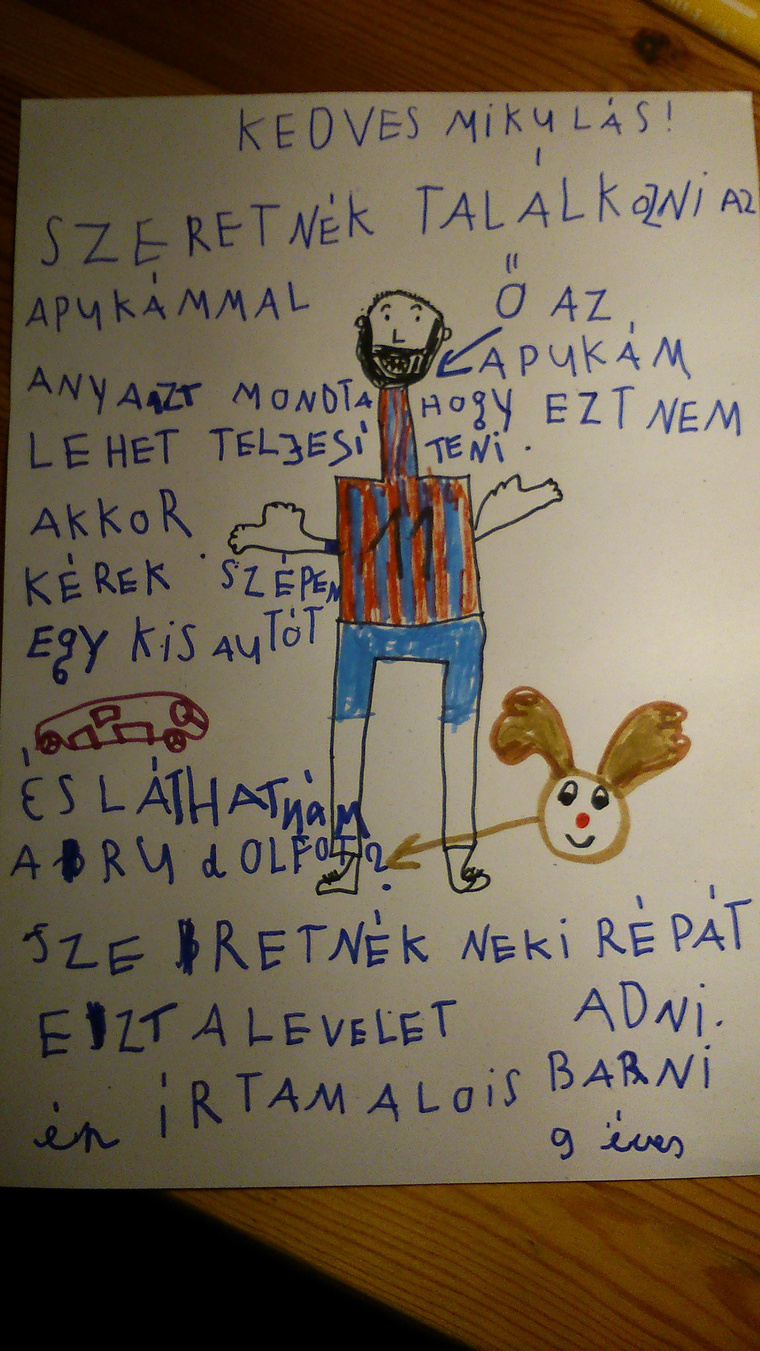 KEDVES MiKULÁS!
SZERETNÉK TALÁLKOZNi AZ
APUKÁMMAL
Ő AZ
APUKÁM
ANYA AZT MONDTA HOGY EZT NEM
LEHET TELJESÍTENi.
AKKOR
KÉREK SZÉPEN
EGY KiS AUTÓT
11
ÉS LÁTHATNÁM
A RUdOLFOT?
SZERETNÉK NEKi RÉPÁT
ADNi.
EZT A LEVELET
én ÍRTAM ALOiS BARNi
9 éves